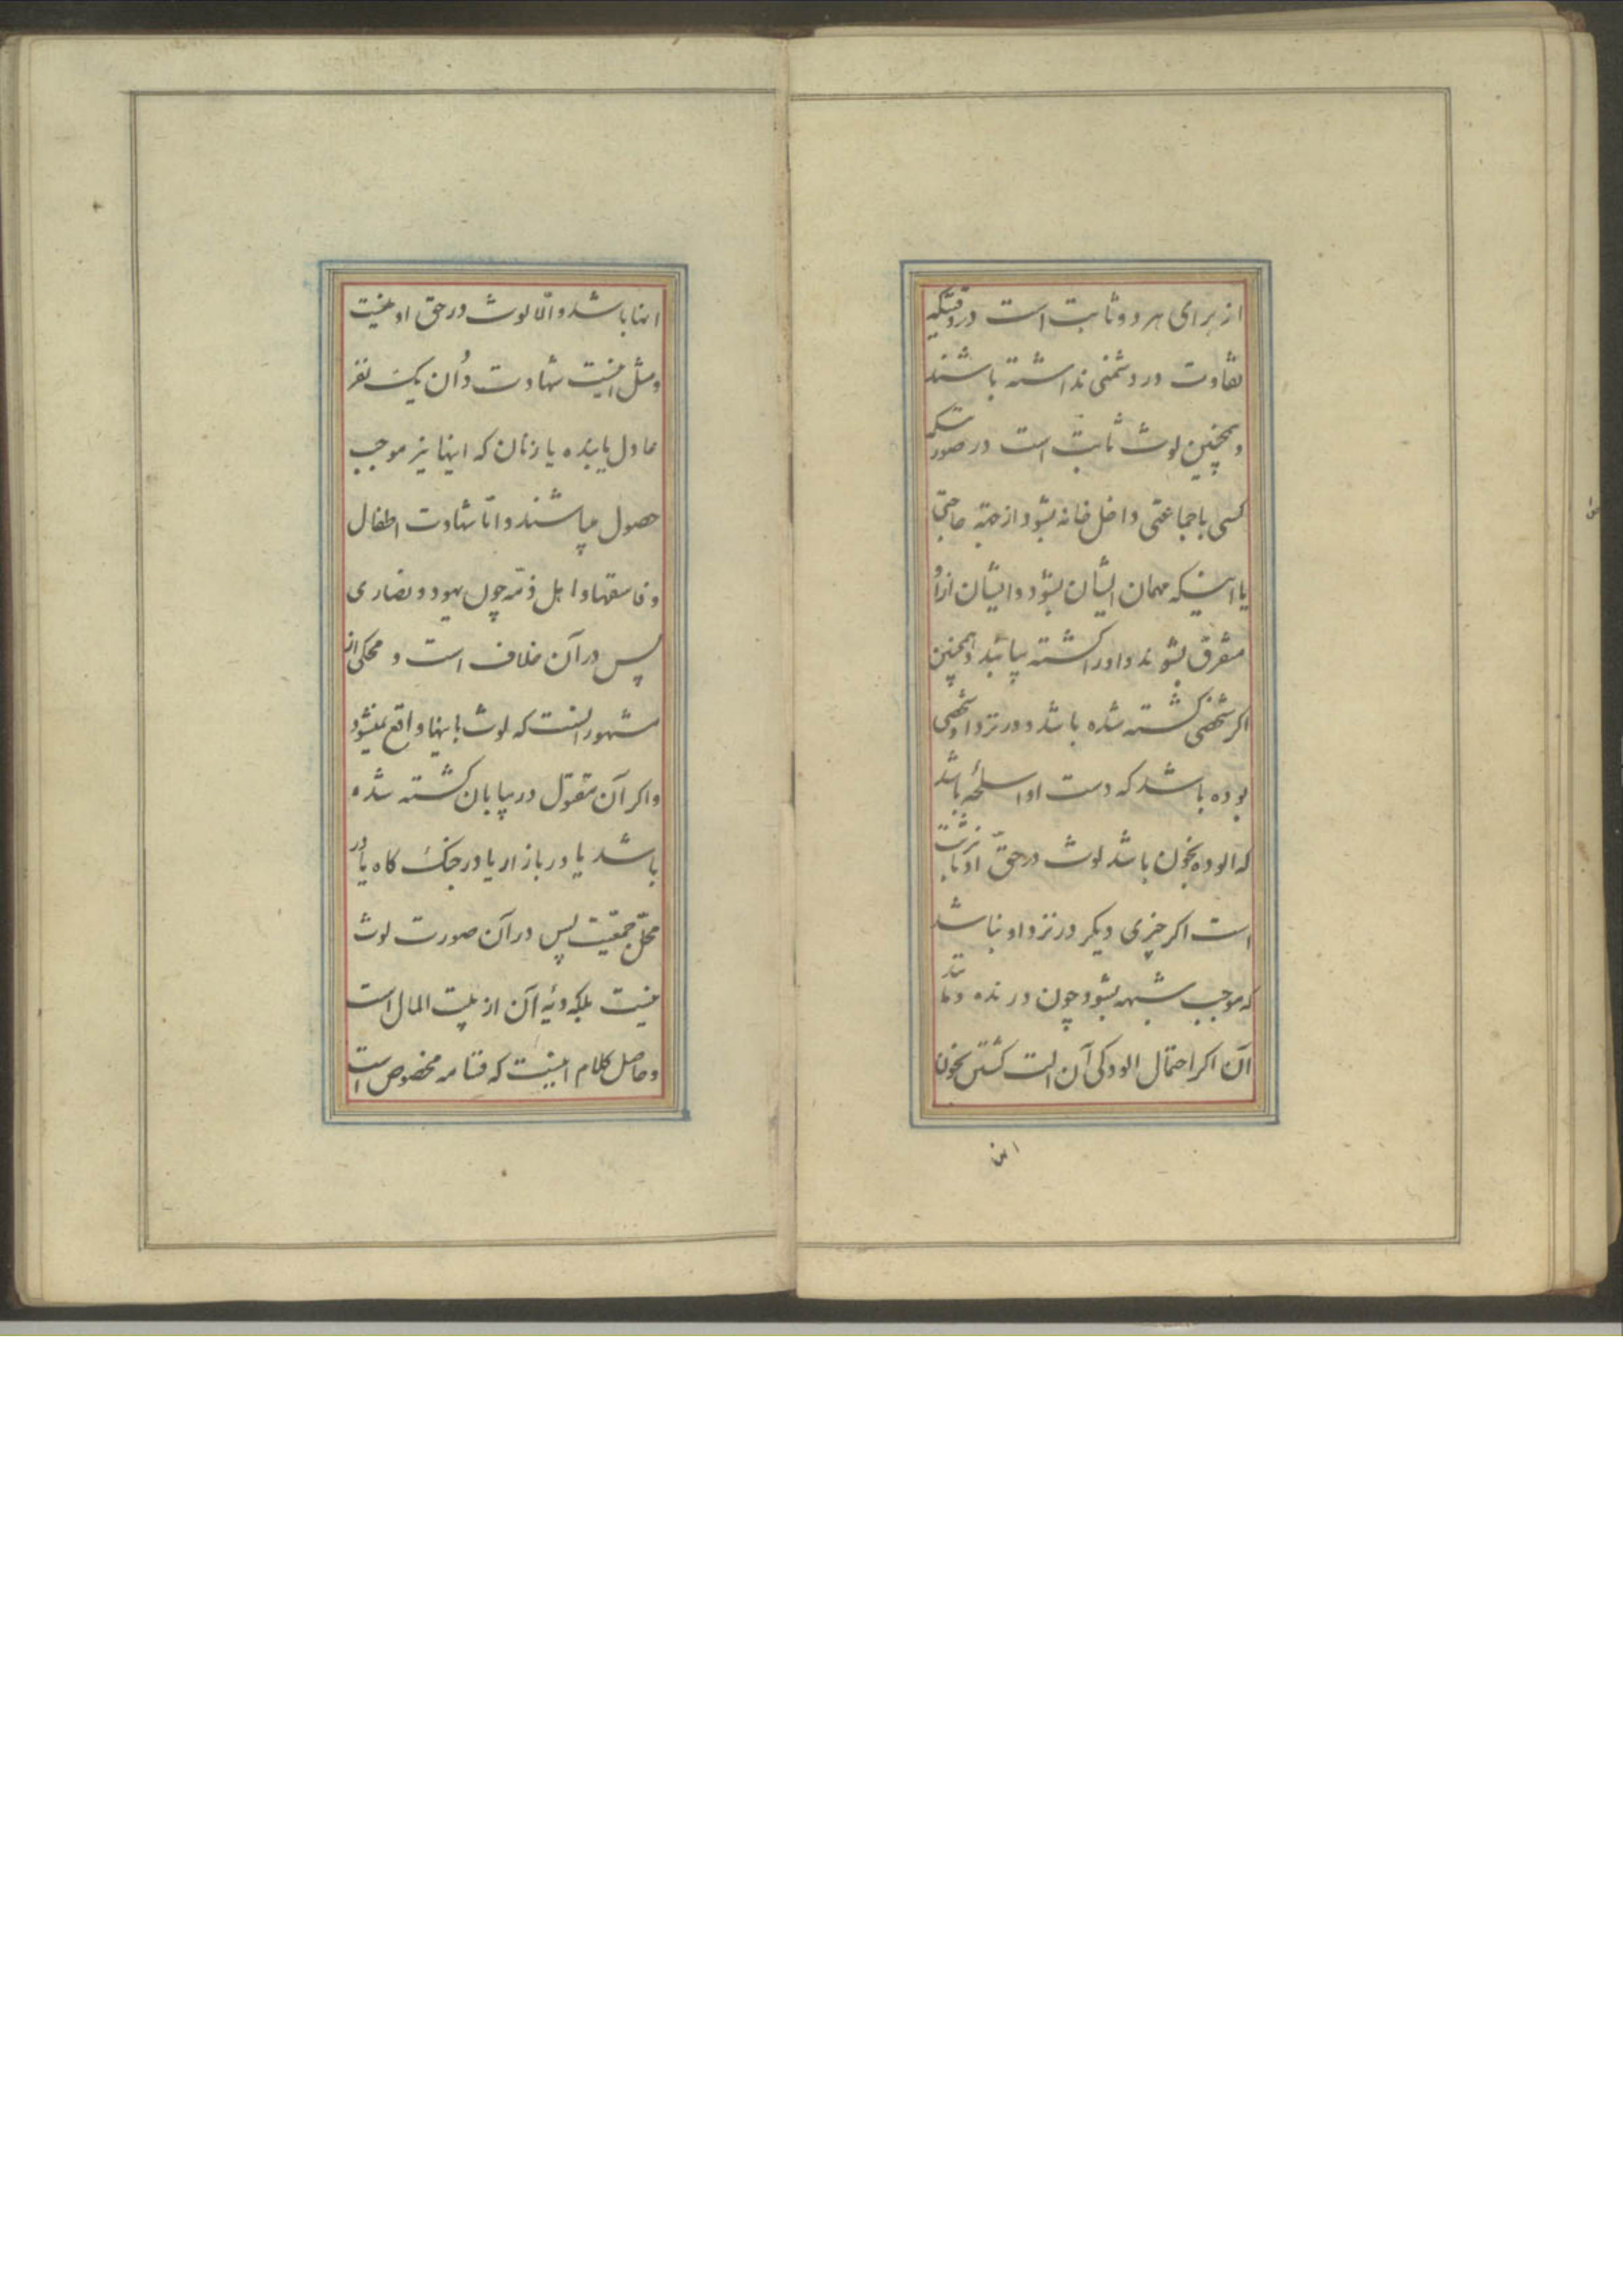 از برای هر دو ثابت است در وقتیکه
تفاوت در دشمنی نداشته باشند
و همچنین لوث ثابت است در صورتیکه
کسی با جماعتی داخل خانه بشود از جهته حاجتی
یا اینکه مهمان ایشان بشود و ایشان از او
متفرق بشوند و او را کشته بیابند و همچنین
اکر شخصی کشته شده باشد و در نزد او شخصی
بوده باشد که دست او اسلحه باشد
که الوده بخون باشد لوث در حقّ او نیز ثابت
است اکر چیزی دیکر در نزد او نباشد
که موجب شبهه بشود چون درنده و مانند
آن اکر احتمال الودکی آن الت کشتن بخون
این
اینها باشد و الّا لوث در حق او نیست
و مثل اینست شهادت دادن یک نفر
عادل یا بنده یا زنان که اینها نیز موجب
حصول میباشند و امّا شهادت اطفال
و فاسقها و اهل ذمّه چون یهود و نصاری
پس در آن خلاف است و محکی از
مشهور اینست که لوث باینها واقع نمیشود
و اکر آن مقتول در بیابان کشته شده
باشد یا در بازار یا در جنک کاه یا در
محلّ جمعیّت پس در آن صورت لوث
نیست بلکه دیّه آن از بیت المال است
و حاصل کلام اینست که قسامه مخصوص است